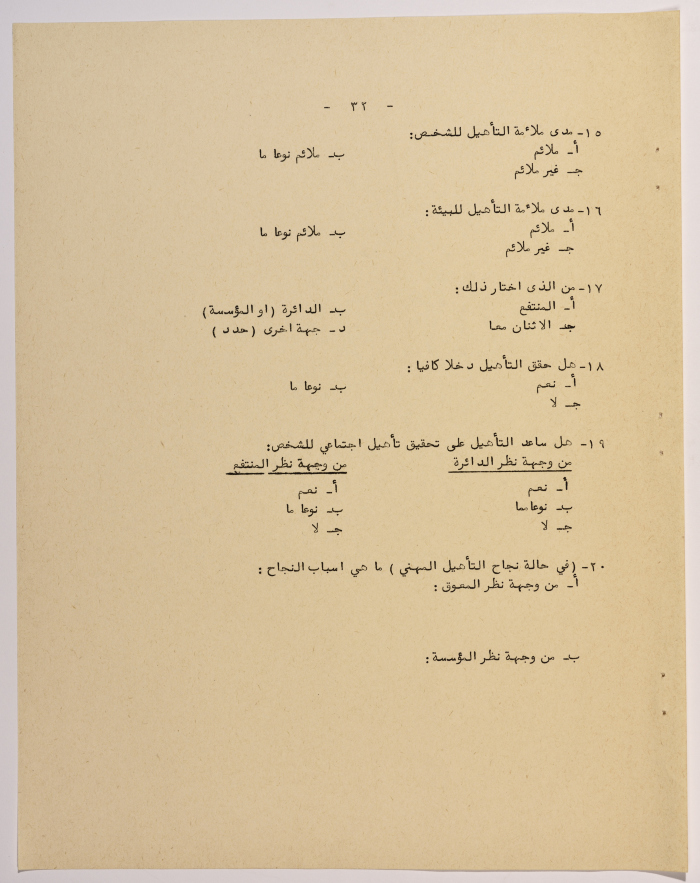 - ٣٢ -
١٥- مدى ملائمة التأهيل للشخص:
أ- ملائم ب- ملائم نوعا ما
ج- غير ملائم
١٦- مدى ملائمة التأهيل للبيئة:
أ- ملائم ب- ملائم نوعا ما
ج- غير ملائم
١٧- من الذى اختار ذلك:
أ- المنتفع ب- الدائرة (او المؤسسة)
ج- الاثنان معا د- جهة اخرى (حدد)
١٨- هل حقق التأهيل دخلا كافيا:
أ- نعم ب- نوعا ما
ج- لا
١٩- هل ساعد التأهيل على تحقيق تأهيل اجتماعي للشخص:
من وجهة نظر الدائرة من وجهة نظر المنتفع
أ- نعم أ- نعم
ب- نوعا مما ب- نوعا ما
ج- لا ج- لا
٢٠- (في حالة نجاح التأهيل المهني) ما هي اسباب النجاح:
أ- من وجهة نظر المعوق:
ب- من وجهة نظر المؤسسة: